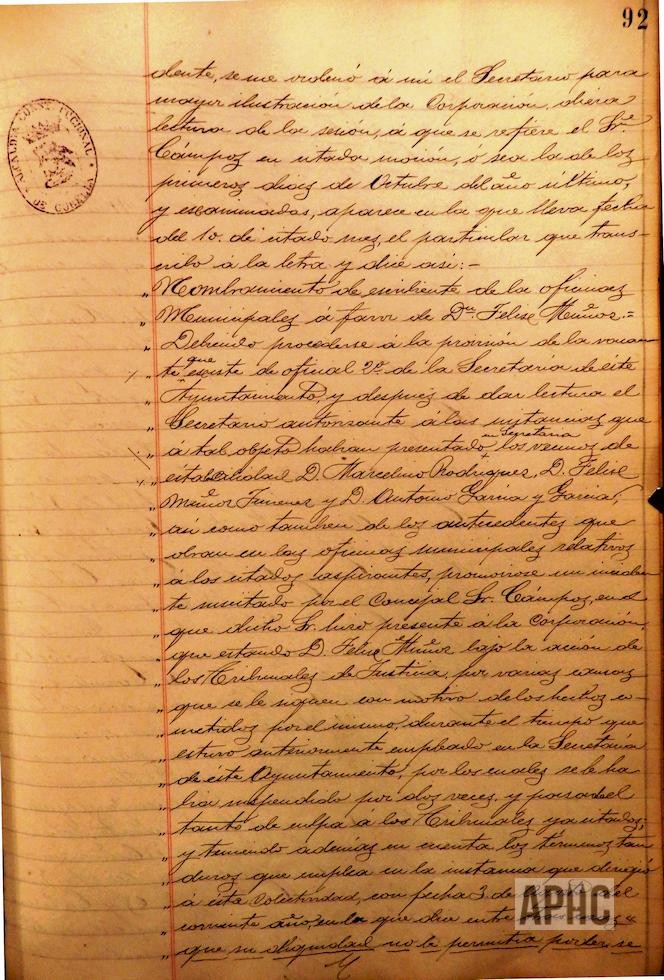 92
ALCALDIA CONSTITUCIONAL
DE CORRALES
dente, se me ordenó á mi el Secretario para
mayor ilustración de la Corporación, diera
lectura de la sesión, á que se refiere el Sr.
Cámpos en citada moción, ó sea la de los
primeros dias de Octubre del año último,
y examinadas, aparece en la que lleva fecha
del 10. de citado mes, el particular que trans-
cribo á la letra y dice asi:-
" Nombramiento de escribiente de la oficinas
" Municipales á favor de Dn. Felise Muñoz.=
" Debiendo procederse á la provisión de la vacan-
" te que existe de oficial 2º de la Secretaría de este
" Ayuntamiento, y después de dar lectura el
" Secretario autorizante á las instancias que
" á tal objeto habian presentado en Secretaria los vecinos de
" esta localidad D. Marcelino Rodriguez, D. Felise
" Muñoz Jimenez y D. Antonio Garcia y Garcia,
" asi como tambien de los antecedentes que
" obran en las oficinas municipales relativos
" á los citados aspirantes, promoviose un inciden-
" te suscitado por el Concejal Sr. Cámpos, en el
" que dicho Sr. hizo presente á la Corporación,
" que estando D. Felise Muñoz bajo la acción de
" los Tribunales de Justicia, por varias causas
" que se le siguen con motivo de los hechos co-
" metidos por el mismo, durante el tiempo que
" estuvo anteriormente empleado en la Secretaría
" de este Ayuntamiento, por los cuales se le ha-
" bia suspendido por dos veces, y pasado el
" tanto de culpa á los Tribunales ya citados;
" y teniendo además en cuenta los términos tan
" duros que emplea en la instancia que dirigió
" á esta Colectividad, con fecha 3 de del
" corriente año, en la que dice entre
" que su dignidad no le permitia poderse
APHC